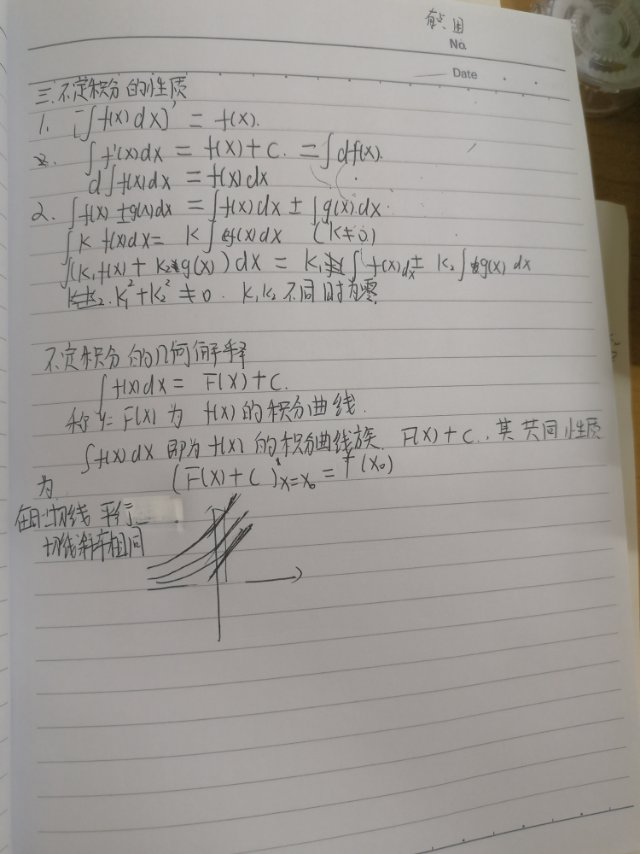 No.
Date
三.不定积分的性质
1. [∫f(x)dx]' = f(x).
∫f'(x)dx = f(x)+C. = ∫df(x).
d∫f(x)dx = f(x)dx
2. ∫f(x)±g(x)dx = ∫f(x)dx ± ∫g(x)dx.
∫k f(x)dx = k∫f(x)dx (k≠0)
∫(k₁f(x) + k₂g(x))dx = k₁∫f(x)dx ± k₂∫g(x)dx
k₁²+k₂²≠0. k₁k₂不同时为零
不定积分的几何解释
∫f(x)dx = F(x)+C.
称y=F(x)为f(x)的积分曲线.
∫f(x)dx即为f(x)的积分曲线族 F(x)+C.,其共同性质
为 (F(x)+C)'x=x₀ = f(x₀)
切线平行
切线斜率相同